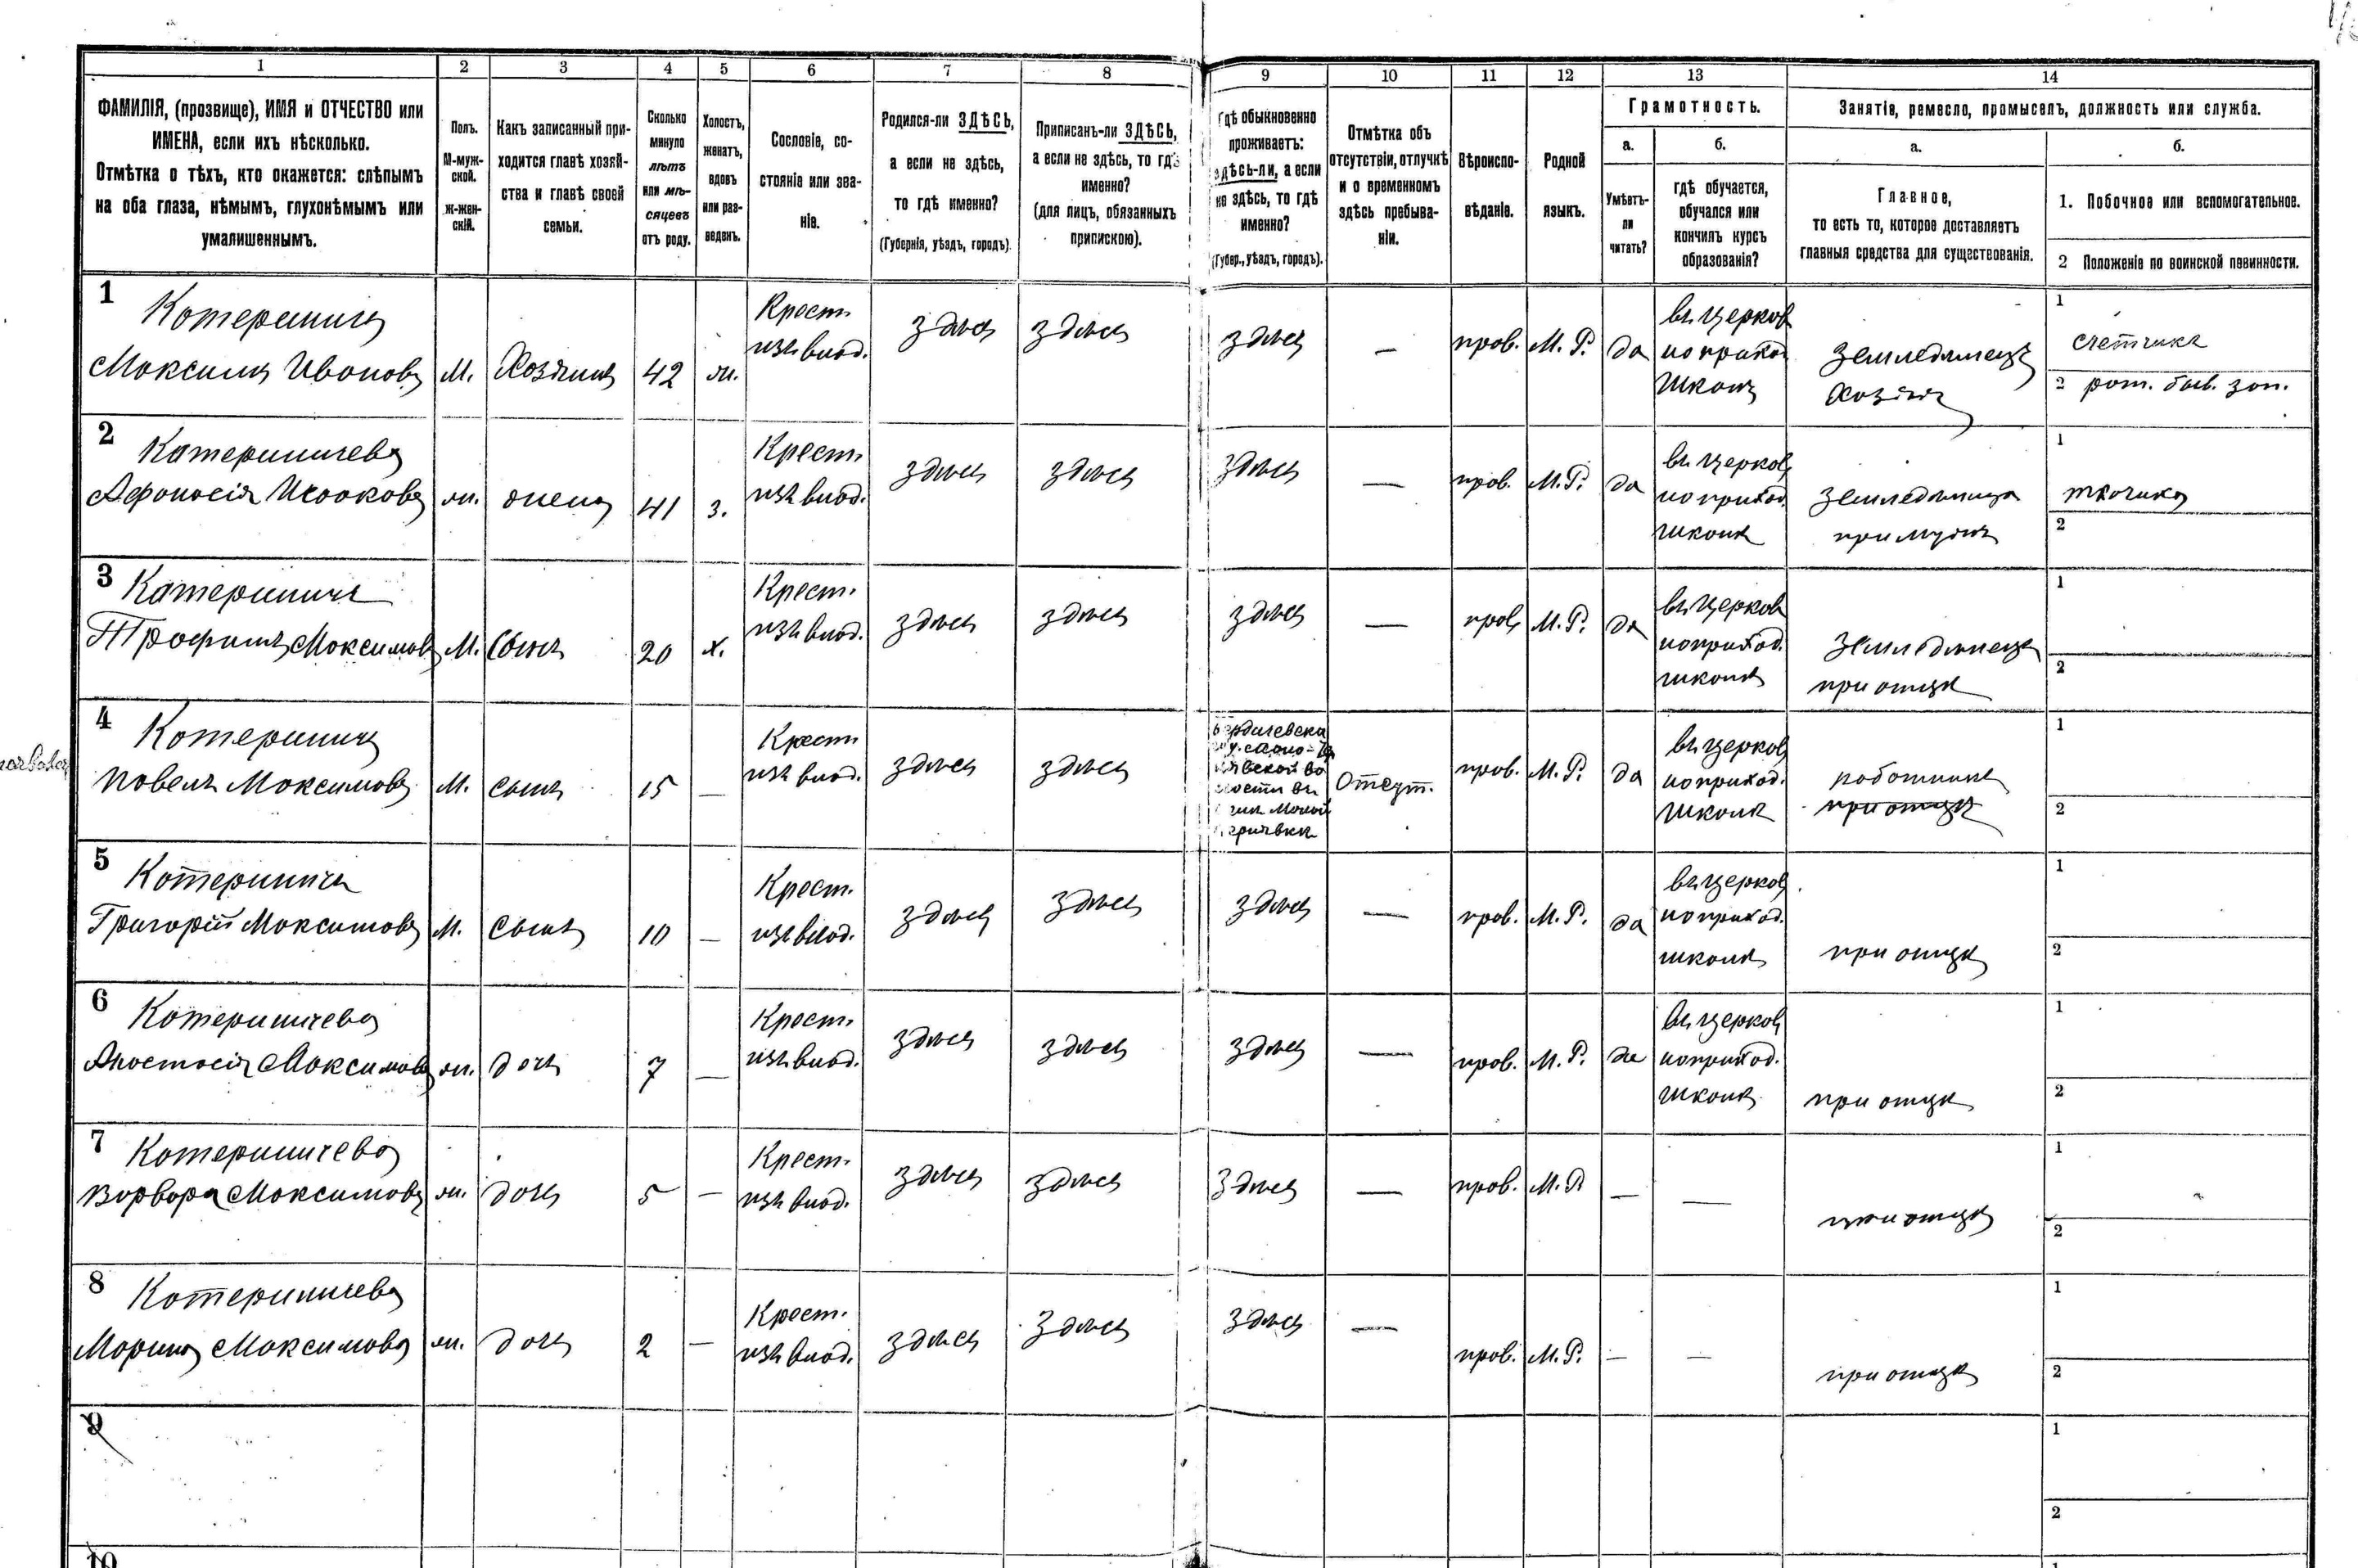 1 2 3 4 5 6 7 8 9 10 11 12 13 14
ФАМИЛІЯ, (прозвище), ИМЯ и ОТЧЕСТВО или
ИМЕНА, если ихъ нѣсколько.
Отмѣтка о тѣхъ, кто окажется: слѣпымъ
на оба глаза, нѣмымъ, глухонѣмымъ или
умалишеннымъ.
Полъ.
М-муж-
ской.
Ж-жен-
скій.
Какъ записанный при-
ходится главѣ хозяй-
ства и главѣ своей
семьи.
Сколько
минуло
лѣтъ
или мѣ-
сяцевъ
отъ роду.
Холостъ,
женатъ,
вдовъ
или раз-
веденъ.
Сословіе, со-
стояніе или зва-
ніе.
Родился-ли ЗДѢСЬ,
а если не здѣсь,
то гдѣ именно?
(Губернія, уѣздъ, городъ).
Приписанъ-ли ЗДѢСЬ,
а если не здѣсь, то гдѣ
именно?
(для лицъ, обязанныхъ
припискою).
Гдѣ обыкновенно
проживаетъ:
здѣсь-ли, а если
не здѣсь, то гдѣ
именно?
(Губер., уѣздъ, городъ).
Отмѣтка объ
отсутствіи, отлучкѣ
и о временномъ
здѣсь пребыва-
ніи.
Вѣроиспо-
вѣданіе.
Родной
языкъ.
Грамотность.
а.
Умѣетъ-
ли
читать?
б.
гдѣ обучается,
обучался или
кончилъ курсъ
образованія?
Занятіе, ремесло, промыселъ, должность или служба.
а.
Главное,
то есть то, которое доставляетъ
главныя средства для существованія.
б.
1. Побочное или вспомогательное.
2 Положеніе по воинской повинности.
1
Катериничъ
Максимъ Ивановъ
М.
Хозяинъ
42
ж.
Крест.
изъ влад.
здѣсь
здѣсь
здѣсь
—
прав.
М. Р.
да
въ церков
ноприход
школѣ
земледѣлецъ
хозяинъ
1
счетчикъ
2 рат. быв. зап.
2
Катериничева
Афанасія Исаакова
ж.
жена
41
з.
Крест.
изъ влад.
здѣсь
здѣсь
здѣсь
—
прав.
М. Р.
да
въ церков
ноприход.
школѣ
земледѣлица
при мужѣ
1
ткачиха
2
3
Катериничъ
Трофимъ Максимовъ
М.
Сынъ
20
х.
Крест.
изъ влад.
здѣсь
здѣсь
здѣсь
—
прав.
М. Р.
да
въ церков
ноприход.
школѣ
земледѣлецъ
при отцѣ
1
2
4
Катериничъ
Павелъ Максимовъ
М.
сынъ
15
—
Крест.
изъ влад.
здѣсь
здѣсь
Отсут.
прав.
М. Р.
да
въ церков
ноприход.
школѣ
работникъ
при отцѣ
1
2
5
Катериничъ
Григорій Максимовъ
М.
сынъ
10
—
Крест.
изъ влад.
здѣсь
здѣсь
здѣсь
—
прав.
М. Р.
да
въ церков
ноприход.
школѣ
при отцѣ
1
2
6
Катериничева
Анастасія Максимова
ж.
дочь
7
—
Крест.
изъ влад.
здѣсь
здѣсь
здѣсь
—
прав.
М. Р.
да
въ церков
ноприход.
школѣ
при отцѣ
1
2
7
Катериничева
Варвара Максимова
ж.
дочь
5
—
Крест.
изъ влад.
здѣсь
здѣсь
здѣсь
—
прав.
М. Р
—
—
при отцѣ
1
2
8
Катериничева
Марина Максимова
ж.
дочь
2
—
Крест.
изъ влад.
здѣсь
здѣсь
здѣсь
—
прав.
М. Р.
—
—
при отцѣ
1
2
9
1
2
10
1